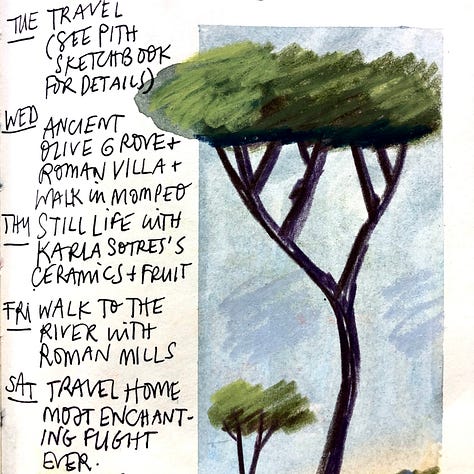 TUE TRAVEL
(SEE PITH
SKETCHBOOK
FOR DETAILS)
WED ANCIENT
OLIVE GROVE +
ROMAN VILLA +
WALK IN MOMPEO
THU STILL LIFE WITH
KARLA SOTRES'S
CERAMICS + FRUIT
FRI WALK TO THE
RIVER WITH
ROMAN MILLS
SAT TRAVEL HOME
MOST ENCHANT-
ING FLIGHT
EVER.